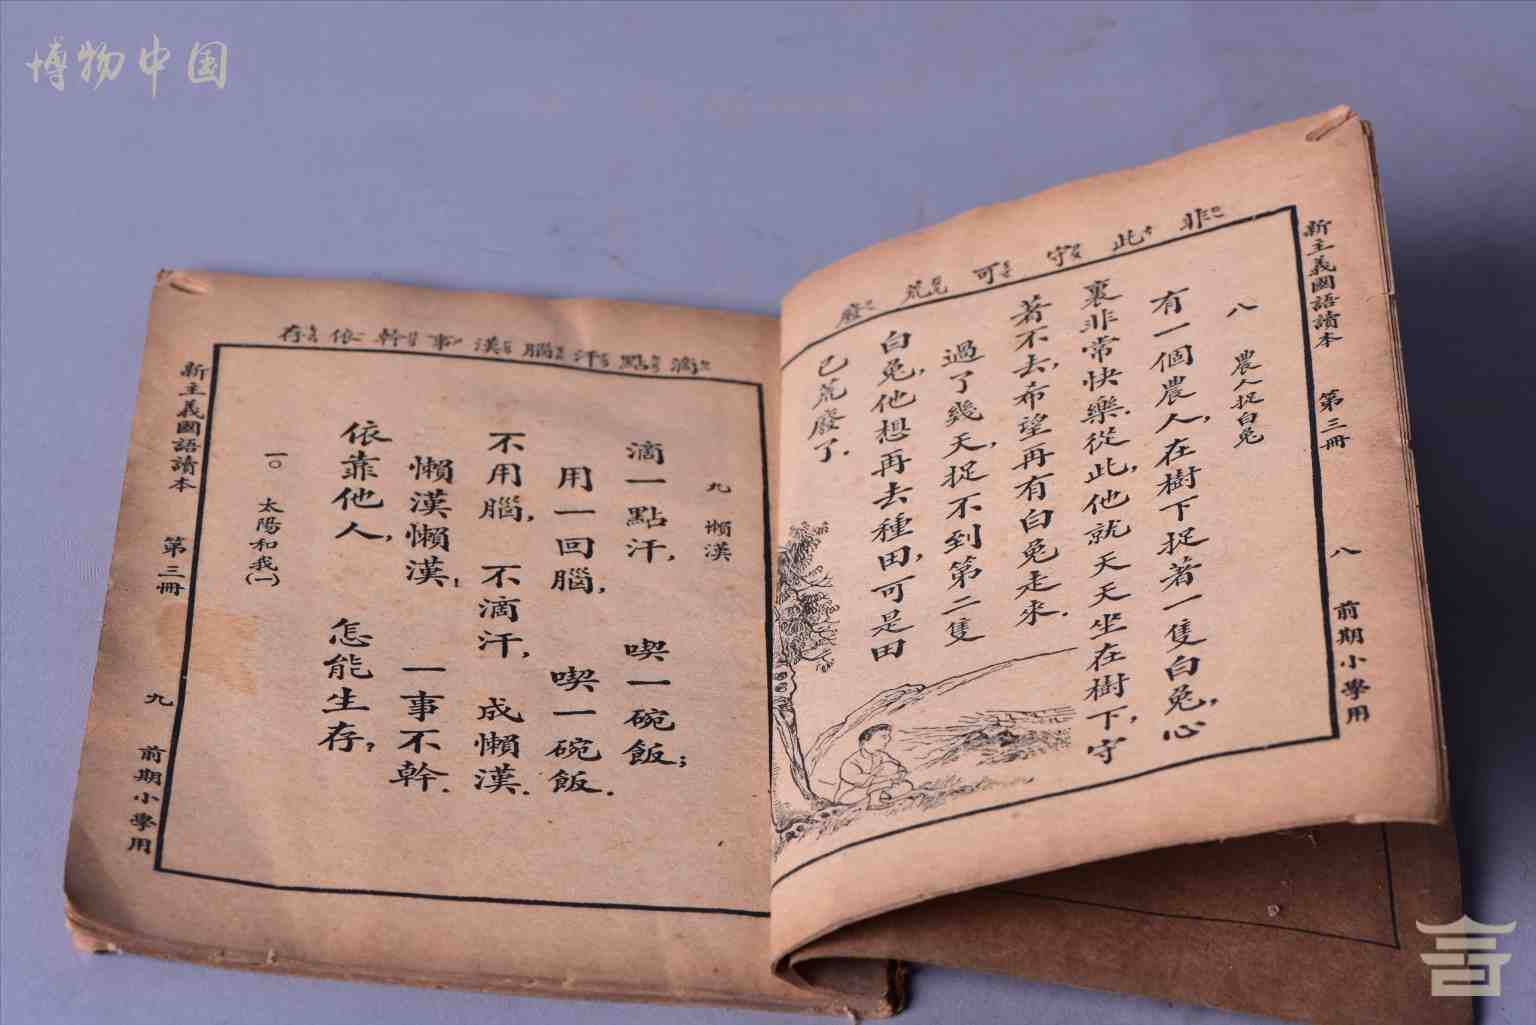 博物中国
非 此 守 可 荒 廢
新主義國語讀本 第三冊 八 前期小學用
八 農人捉白兔
有一個農人,在樹下捉著一隻白兔,心
裏非常快樂.從此,他就天天坐在樹下,守
著不去,希望再有白兔走來.
過了幾天,捉不到第二隻
白兔,他想再去種田,可是田
已荒廢了.
滴 點 汗 腦 漢 事 幹 依 存
九 懶漢
滴一點汗, 喫一碗飯;
用一回腦, 喫一碗飯.
不用腦, 不滴汗, 成懶漢.
懶漢懶漢, 一事不幹.
依靠他人, 怎能生存,
一〇 太陽和我(一)
新主義國語讀本 第三冊 九 前期小學用